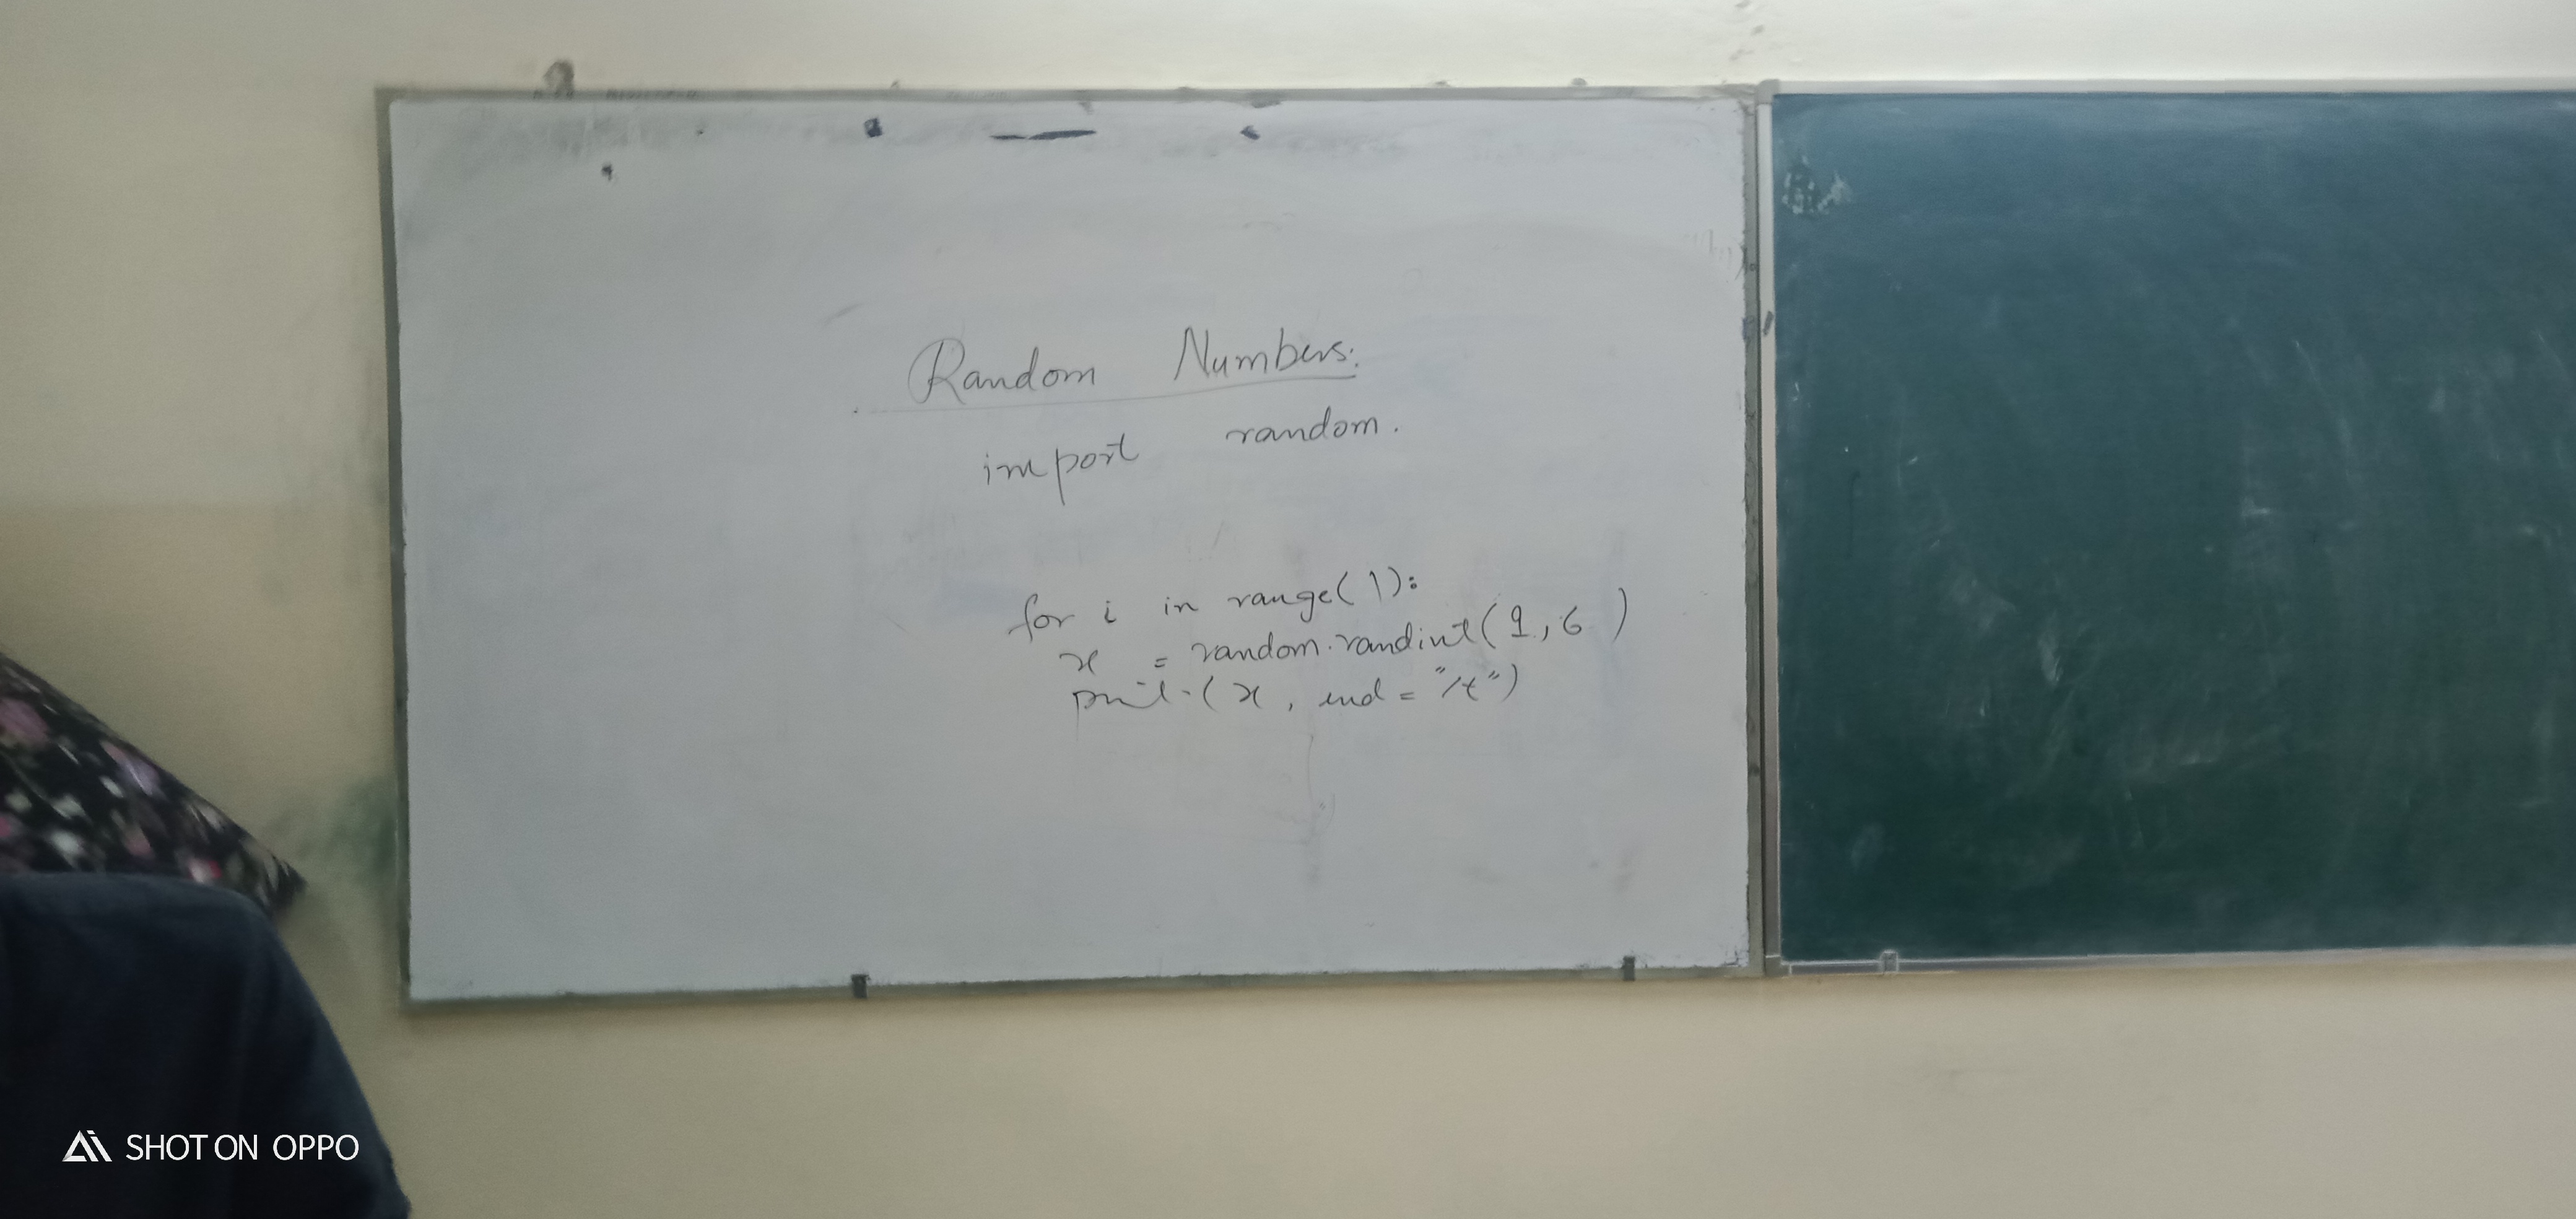 Random Numbers:
import random.
for i in range(1):
x = random.randint(1,6)
print.(x, end = "/t")
SHOT ON OPPO